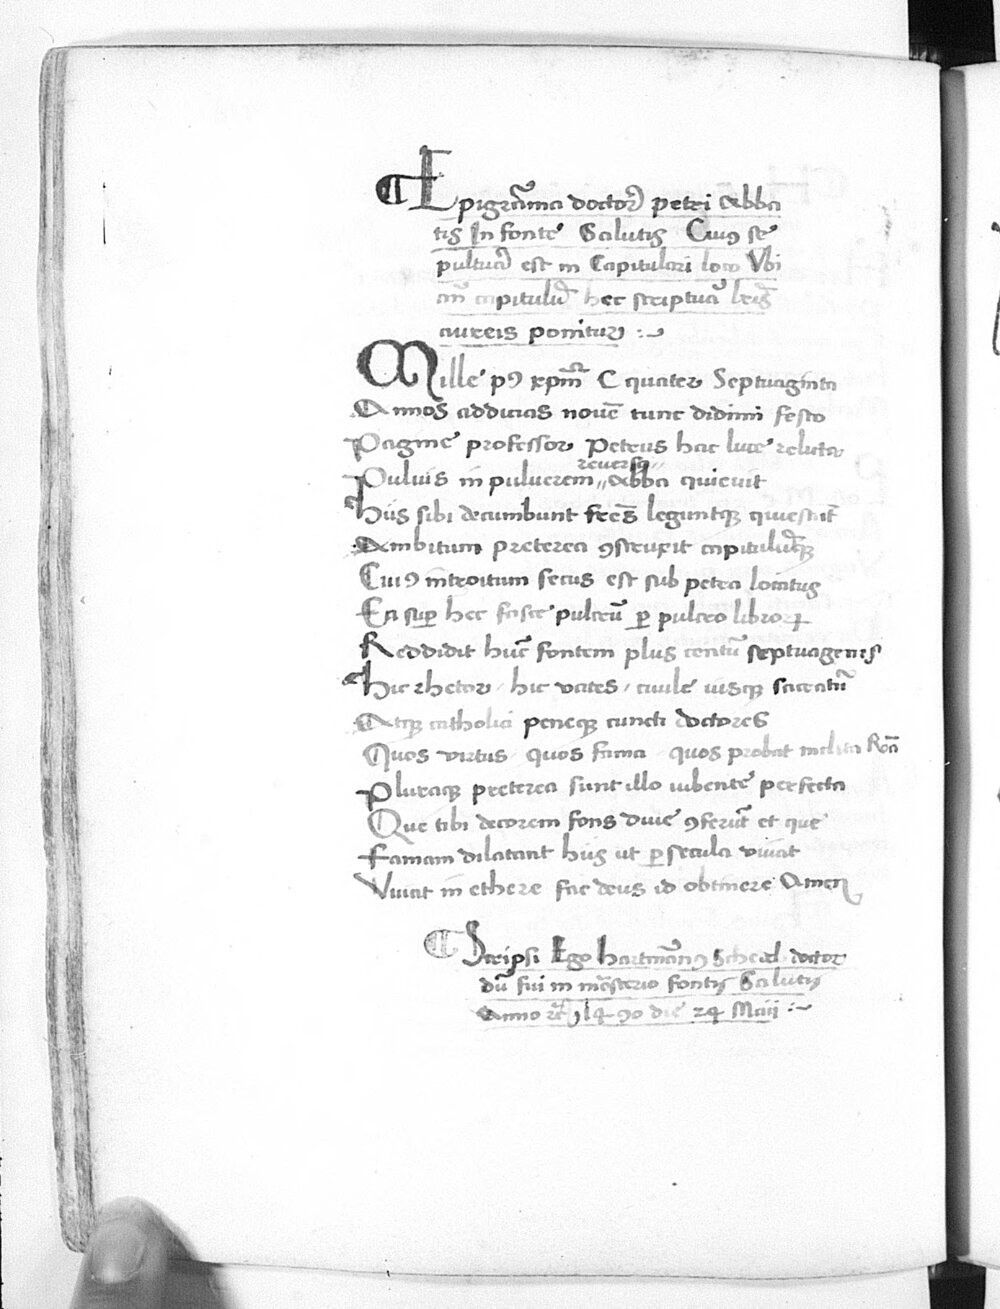 Epigrãma doctor̃ petri abba
tis In fonte Salutis Cuiꝰ se
pultur̃ est in Capitulari loco Vbi
añ capitulũ hec scriptur̃ lr̃is
aureis ponitur :~
Mille pꝰ xp̃m C quater Septuaginta
Annos adducas nouẽ tunc didimi festo
Pagine professor Petrus hac luce reluta
Puluis in puluerem reuersꝰ abba quieuit
Hijs sibi decumbunt fr̃es leguntqꝫ quiescũt
Ambitum preterea ꝯstruxit capitulũqꝫ
Cuiꝰ introitum secus est sub petra locatus
En suꝑ hec fosse pulcrũ ꝑ pulcro libroꝝ
Reddidit hũc fontem plus centũ septuagenis
Hic rhetor / hic vates / ciuile iusqꝫ sacratũ
Atqꝫ catholici peneqꝫ cuncti doctores
Quos virtus / quos fama / quos probat inclita Rõa
Pluraqꝫ preterea sunt illo iubente perfecta
Que tibi decorem fons diuie ꝯferũt et que
Famam dilatant hijs ut ꝑ secula viuat
Viuat in ethere fac deus id obtinere Amen
Scripsi Ego hartmãnꝰ Schedel doctor
dũ fui in mõsterio fontis Salutis
Anno rc̃ 1490 die 24 Maij :~